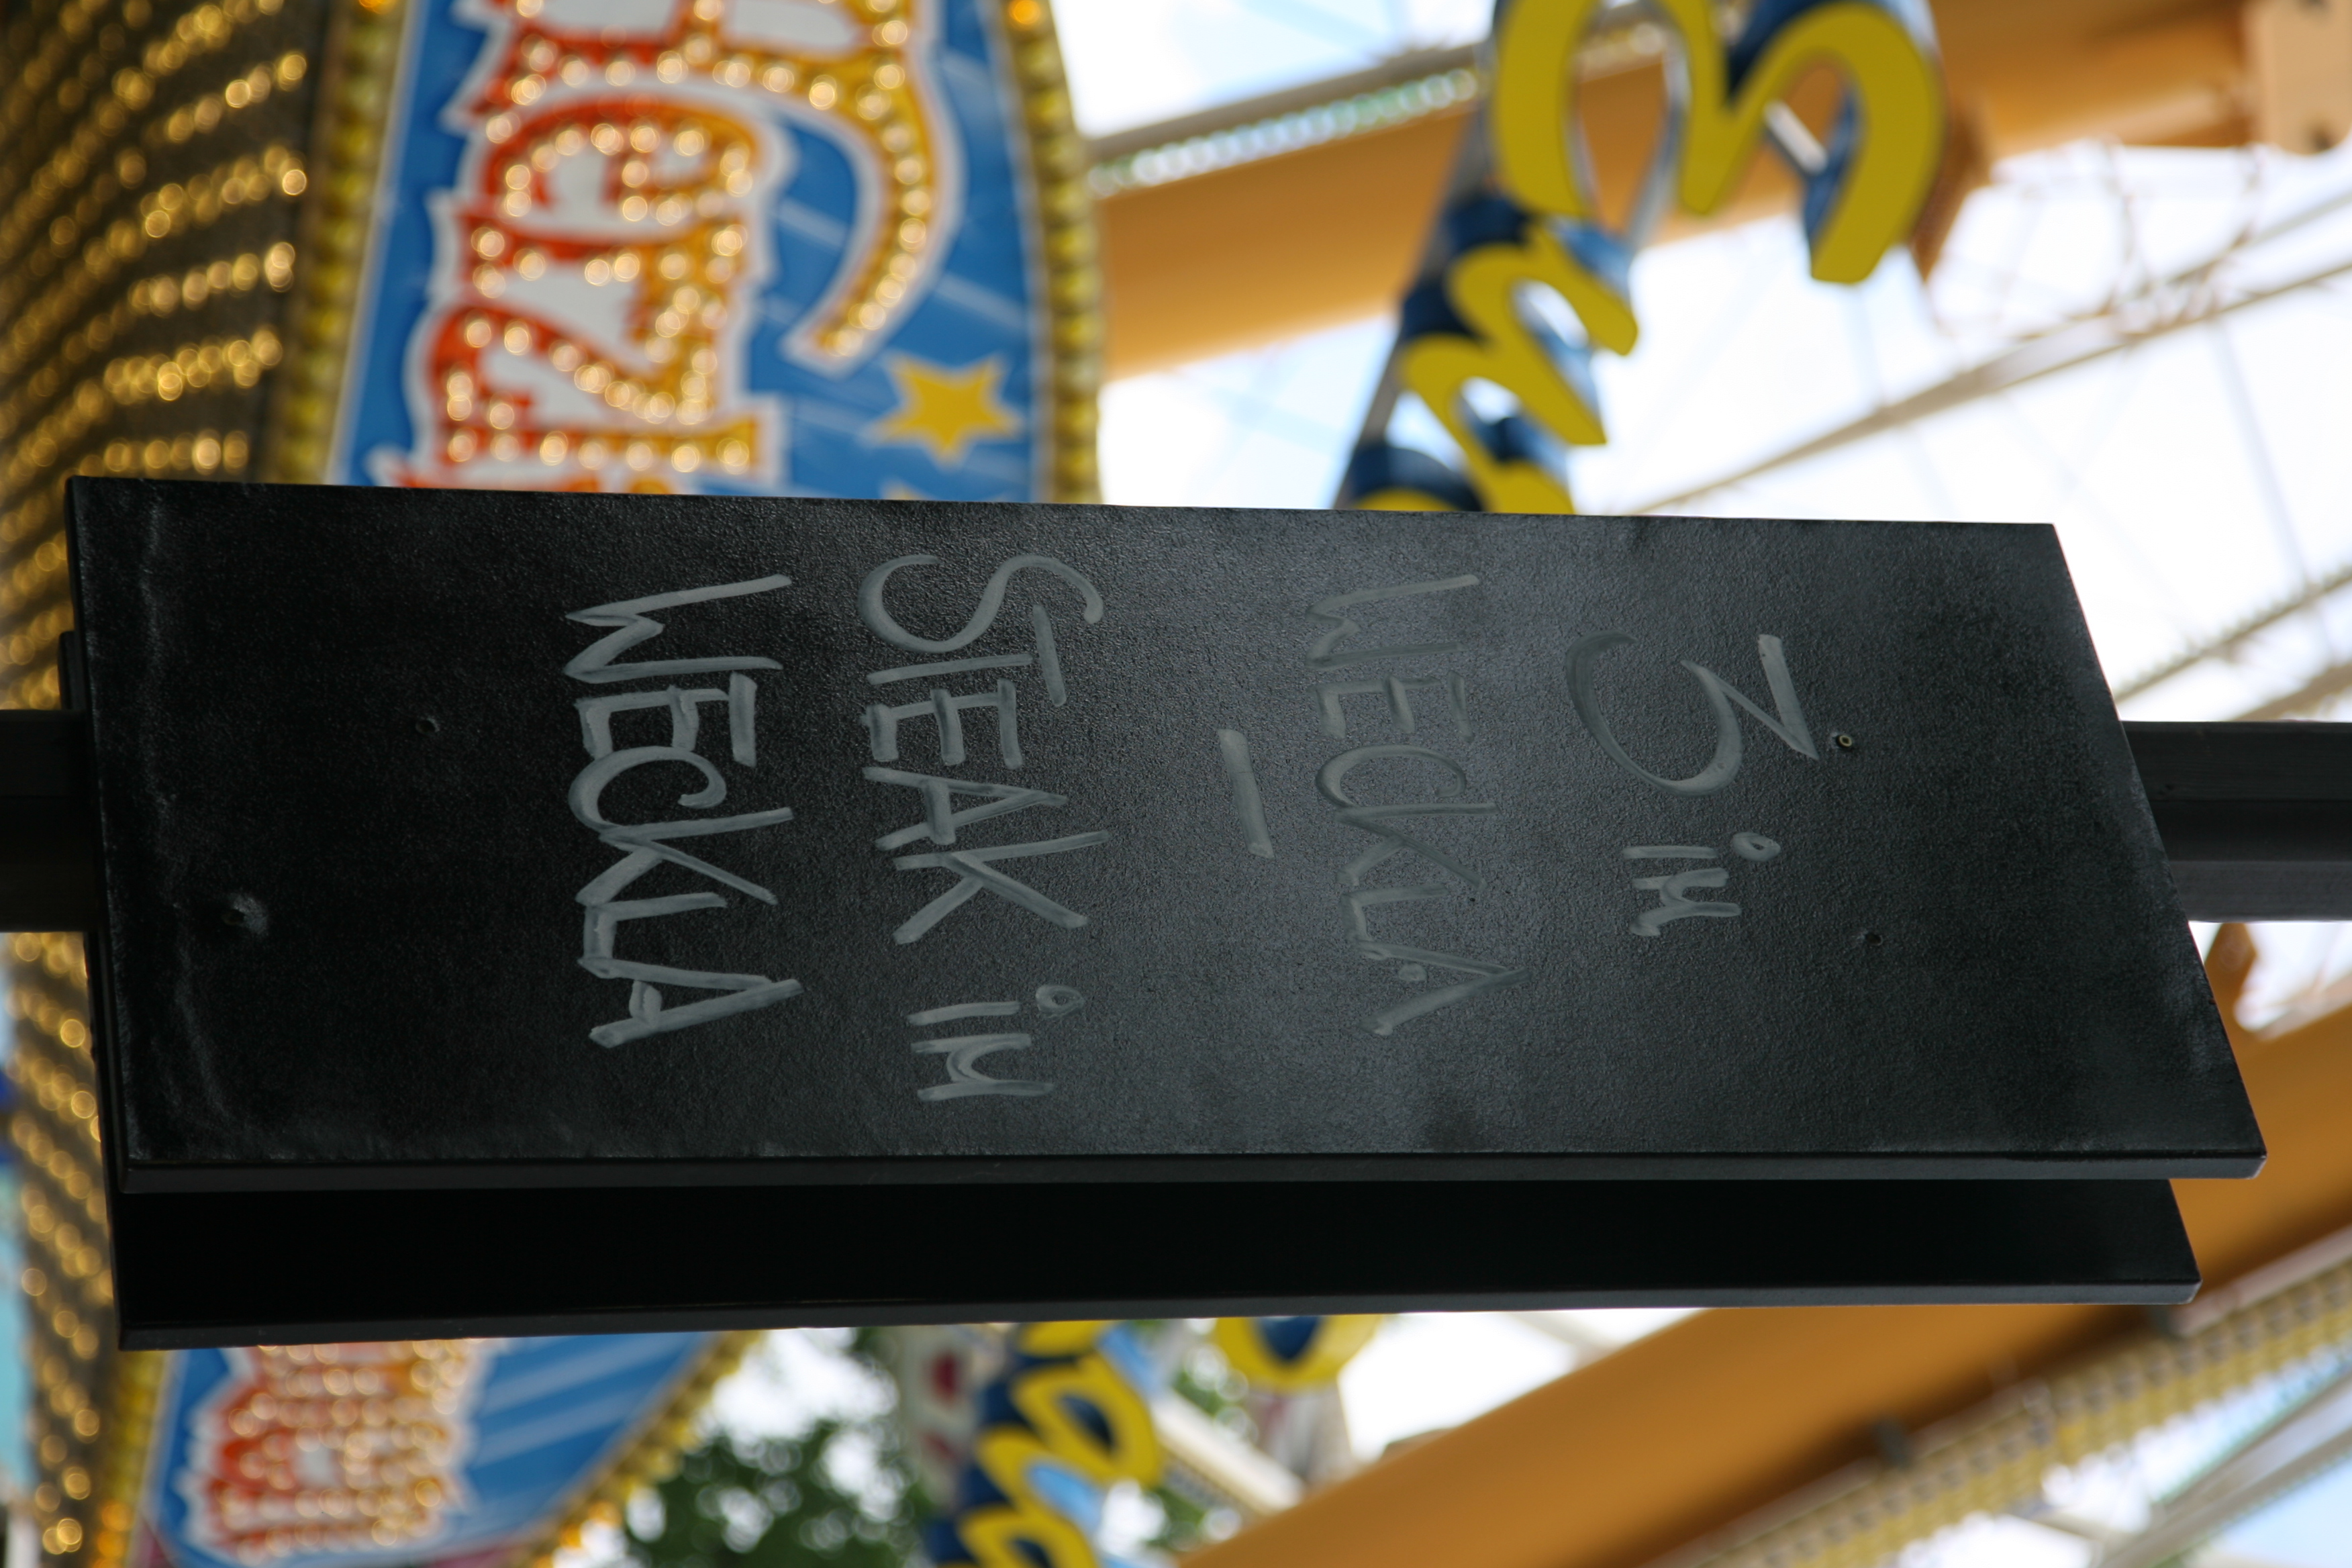 3 im
WECKLA
–
STEAK im
WECKLA
Eu
Herzli